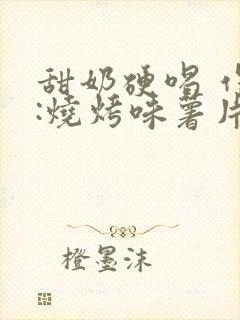 甜奶硬唱
:燒烤味薯片
橙墨沫